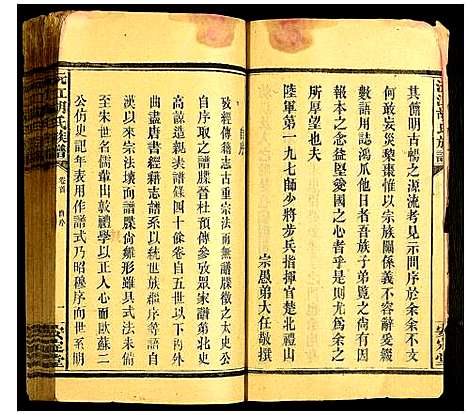 沅江胡氏族譜
其飾明古暢之源流考見示問序於余余不文
何敢妄災棗棃惟以宗族關係義不容辭爰綴
數語用誌鴻爪他日者吾族子弟覽之尚有因
報本之念益堅愛國之心者乎是則尤爲余之
所厚望也
陸軍第一九七師少將步兵指揮楚北禮山
宗愚弟大任敬撰
安定堂
沅江胡氏族譜
卷首
自序
一
安定堂
自序
攷經傳籍志古重宗法而無譜牒徵之太史公
自序取之譜牒晉杜預傳參攷眾家譜北史
高諒造親表譜錄四十餘卷自五世以下內外
曲盡唐書經籍志譜系以統世族繼序等云
漢以來宗法壞而譜牒尚雛形雖具式樣
至朱世名儒輩出敦禮學以正人心而歐蘇二
公仿史記年表用作譜式乃昭穆序而世系明